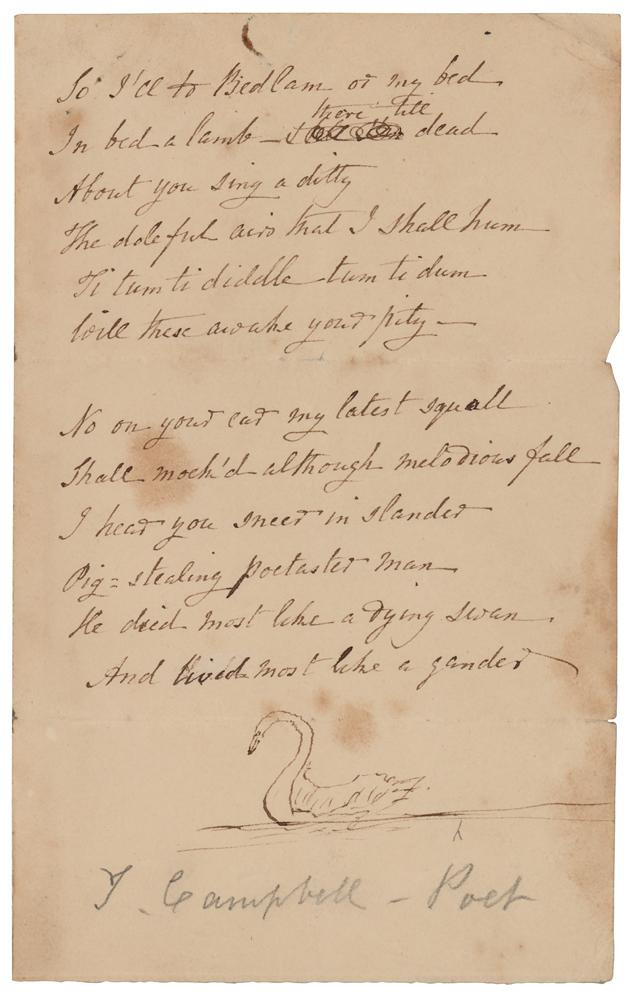 So I'll to Bedlam or my bed
In bed a lamb — there till dead
About you sing a ditty
The doleful airs that I shall hum
Ti tum ti diddle tum ti dum
Will these awake your pity —
No on your ear my latest squall
Shall mock'd although melodious fall
I hear you sneer in slander
Pig = stealing poetaster man
He died most like a dying swan.
And lived most like a gander
T. Campbell – Poet